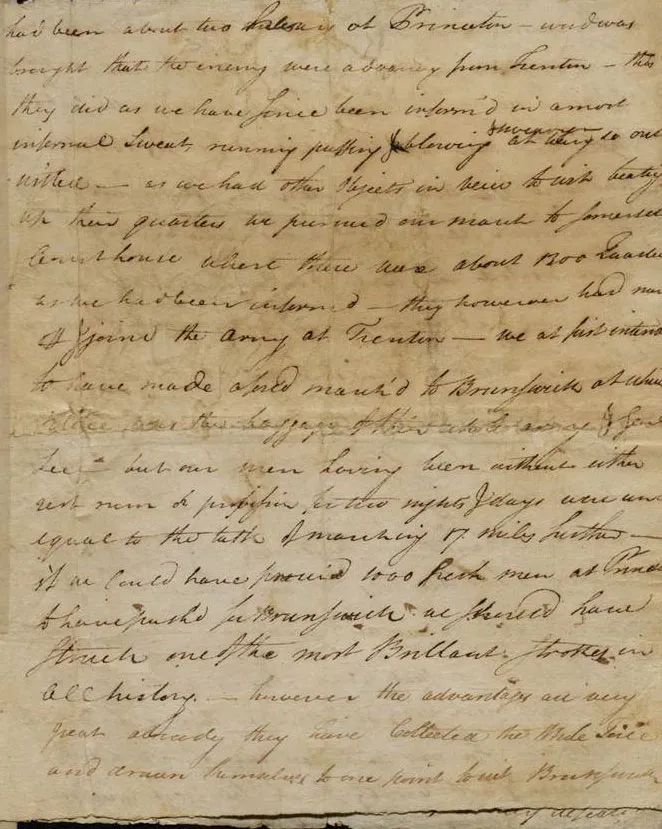 had been about two hours at Princeton – word was
brought that the enemy were advancg from Trenton – this
they did as we have since been inform'd in a most
infernal sweat, running puffing & blowing & swearing at being so out
witted – as we had other Objects in veiw to wit beatg
up their quarters we pursued our march to Somerset
Court house where there were about 1300 Quarte
as we had been informed – they however had mar
off & joind the army at Trenton – we at first intend
to have made a forc'd march'd to Brunswick at which
place was the baggage of their whole army & Gen
Lee – but our men having been without either
rest rum or provision for two nights & days were un
equal to the task of marching 17 miles further –
if we could have procur'd 1000 fresh men at Princ
to have push'd for Brunswick we should have
struck one of the most Brillant strokes in
all history. – however the advantages are very
great already they have Collected the
and drawn themselves to one point to wit Brunswick